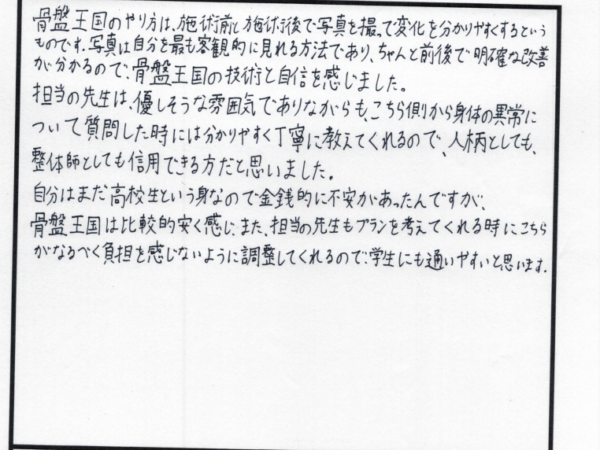 骨盤王国のやり方は、施術前と施術後で写真を撮って変化を分かりやすくするという
ものです。写真は自分を最も客観的に見れる方法であり、ちゃんと前後で明確な改善
が分かるので、骨盤王国の技術と自信を感じました。
担当の先生は、優しそうな雰囲気でありながらも、こちら側から身体の異常に
ついて質問した時には分かりやすく丁寧に教えてくれるので、人柄としても、
整体師としても信用できる方だと思いました。
自分はまだ高校生という身なので金銭的に不安があったんですが、
骨盤王国は比較的安く感じ、また、担当の先生もプランを考えてくれる時にこちら
がなるべく負担を感じないように調整してくれるので、学生にも通いやすいと思います。